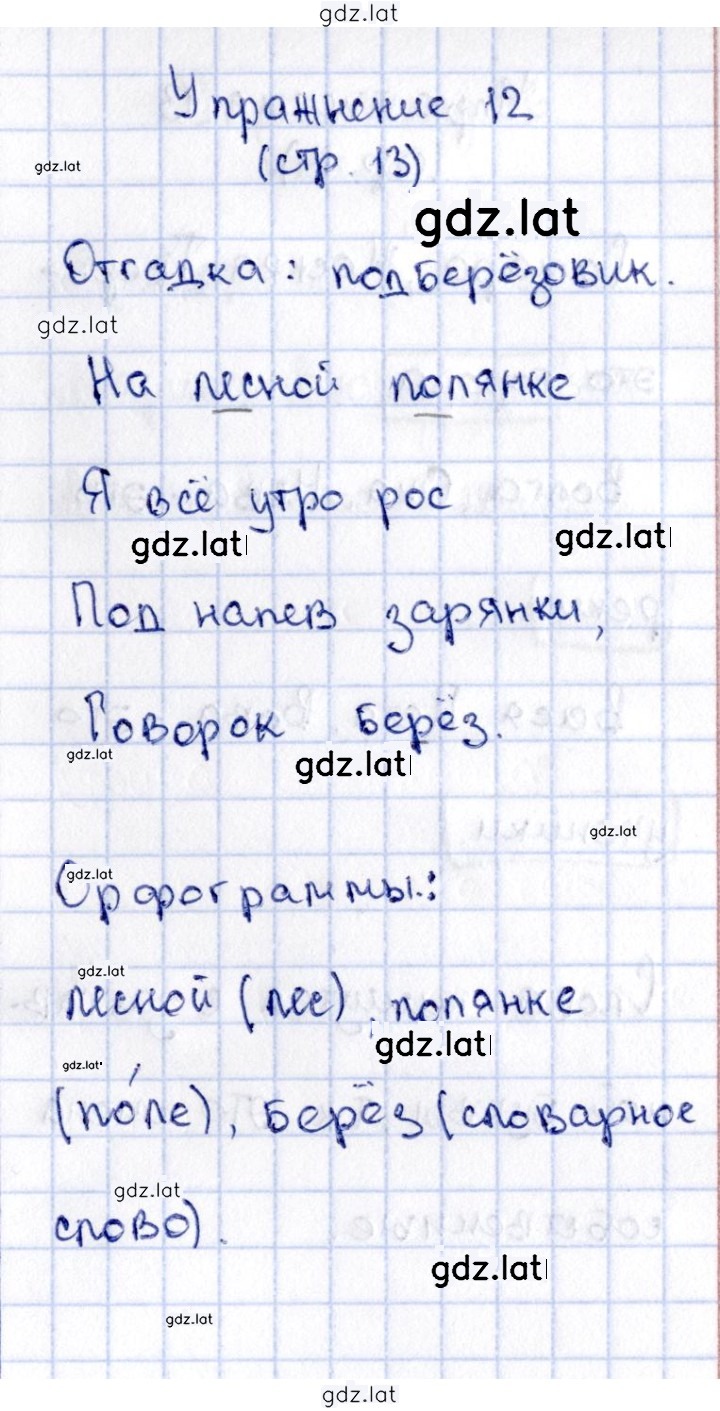 gdz.lat
Упражнение 12
(стр. 13)
gdz.lat
gdz.lat
Отгадка: подберёзовик.
gdz.lat
На лесной полянке
Я всё утро рос
gdz.lat
gdz.lat
Под напев зарянки,
Говорок берёз.
gdz.lat
gdz.lat
gdz.lat
gdz.lat
Орфограммы:
gdz.lat
лесной (лес), полянке
gdz.lat
gdz.lat
(по́ле), берёз (словарное
gdz.lat
слово).
gdz.lat
gdz.lat
gdz.lat